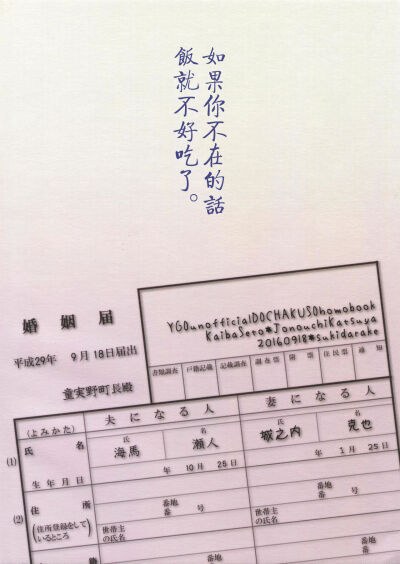 如果你不在的話
飯就不好吃了。
婚姻届
平成29年 9月18日届出
童実野町長殿
YGOunofficialDOCHAKUSOhomobook
KaibaSeto*JonouchiKatsuya
20160918*sukidarake
書類調査 戸籍記載 記載調査 調査票 附票 住民票 通知
夫になる人 妻になる人
(よみかた) 氏 名 氏 名
(1) 氏名 海馬 瀬人 城之内 克也
生年月日 年 10月 25日 年 1月 25日
(2) 住所 番地 番号 番地 番号
(住所登録をして
いるところ)
世帯主
の氏名
世帯主
の氏名
番地 番地